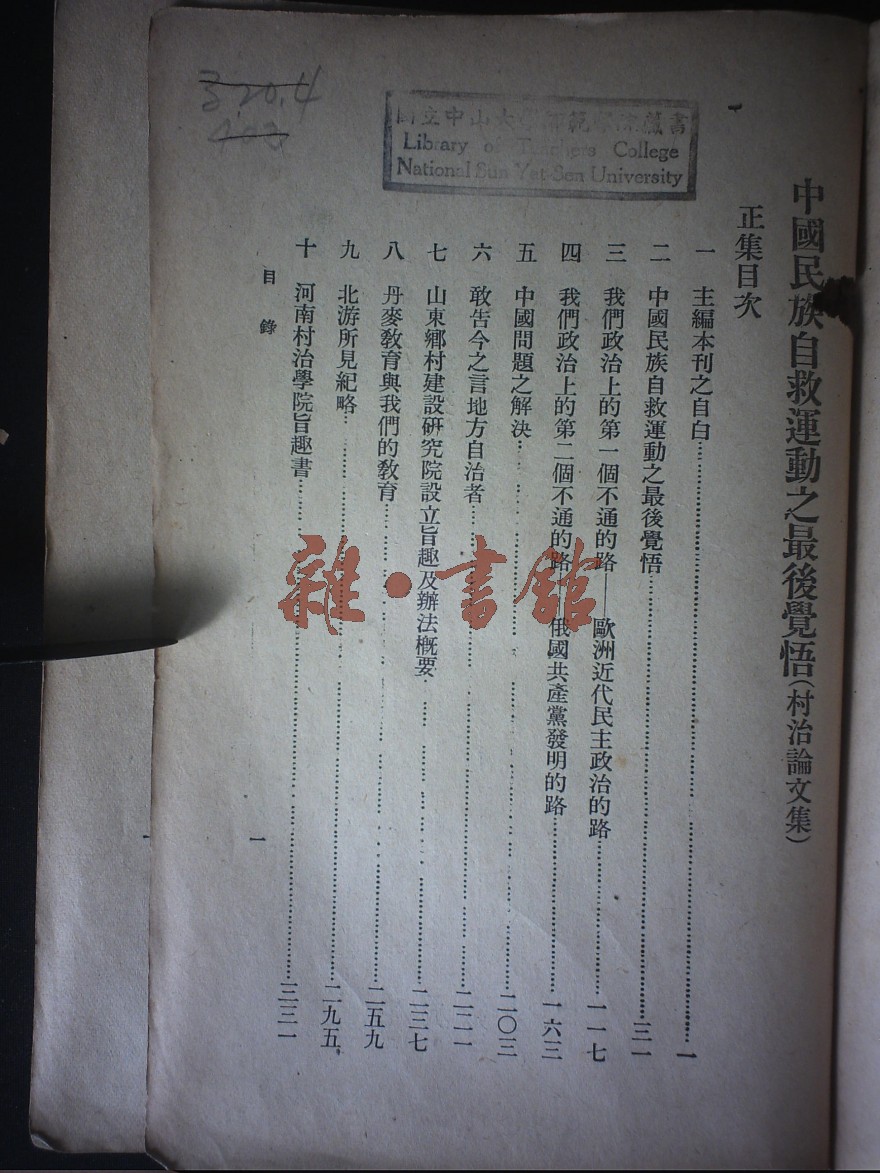 3.20.4
國立中山大學師範學院藏書
Library of Teachers College
National Sun Yat-Sen University
中國民族自救運動之最後覺悟(村治論文集)
正集目次
一 主編本刊之自白……一
二 中國民族自救運動之最後覺悟……三一
三 我們政治上的第一個不通的路——歐洲近代民主政治的路……一一七
四 我們政治上的第二個不通的路——俄國共產黨發明的路……一六三
五 中國問題之解決……二〇三
六 敢告今之言地方自治者……二二一
七 山東鄉村建設研究院設立旨趣及辦法概要……二三七
八 丹麥教育與我們的教育……二五九
九 北游所見紀略……二九五
十 河南村治學院旨趣書……三三一
目錄
一
雜·書館